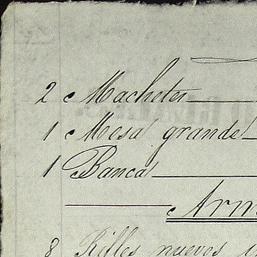 2 Machetes
1 Mesa grande
1 Banca
Arm
8 Rifles nuevos